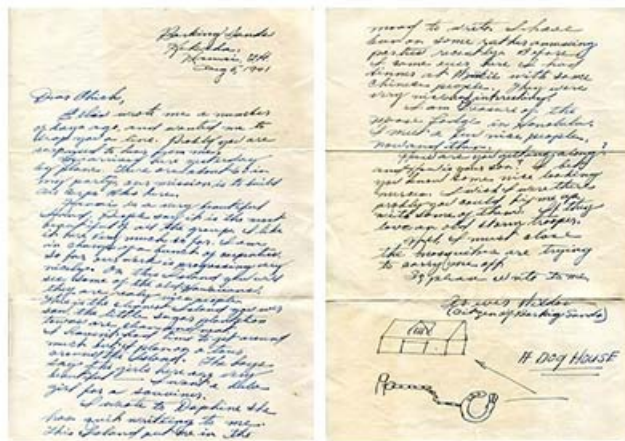 Barking Sands
Kekaha,
Kauai, T.H.
Aug 5, 1941
Dear Chick,
wrote me a number
of days ago, and wanted me to
drop you a line. Probly you are
surprised to hear from me.
arriving here yesterday
by plane. There are about 60 in
my party, our mission is to build
Kauai is a very beautiful
Island, People say it is the most
beautiful of all the group. I like
it very much so far. I am
in charge of a bunch of carpenters,
so far our work is progressing very
nicely. On this Island you will
see some of the old Hawaiians,
they are really nice people.
This is the kind of Island you
the little sugar plantation
towns are
I haven't had time to get around
much but I
around the Island. The boys
say the girls here are very
beautiful I want a hula
girl for a souvenir.
I wrote to Daphine she
has quit writting to me.
This Island put me in the
mood to write. I have
been on some rather amusing
parties recently. Before
I came over here I had
dinner at with some
Chinese people. They were
very nice and interesting.
I am of the
Moose Lodge in Honolulu.
I meet a few nice people,
now and then.
How are you getting along?
and how is your son? I bet
you know some nice looking
nurses. I wish I were there
probly you could fix me up
with some of them. If they
love an old storm trooper.
Well I must close
the mosquitoes are trying
to carry me off
please write to me
Wilder
(Citizen of Barking Sands)
A DOG HOUSE